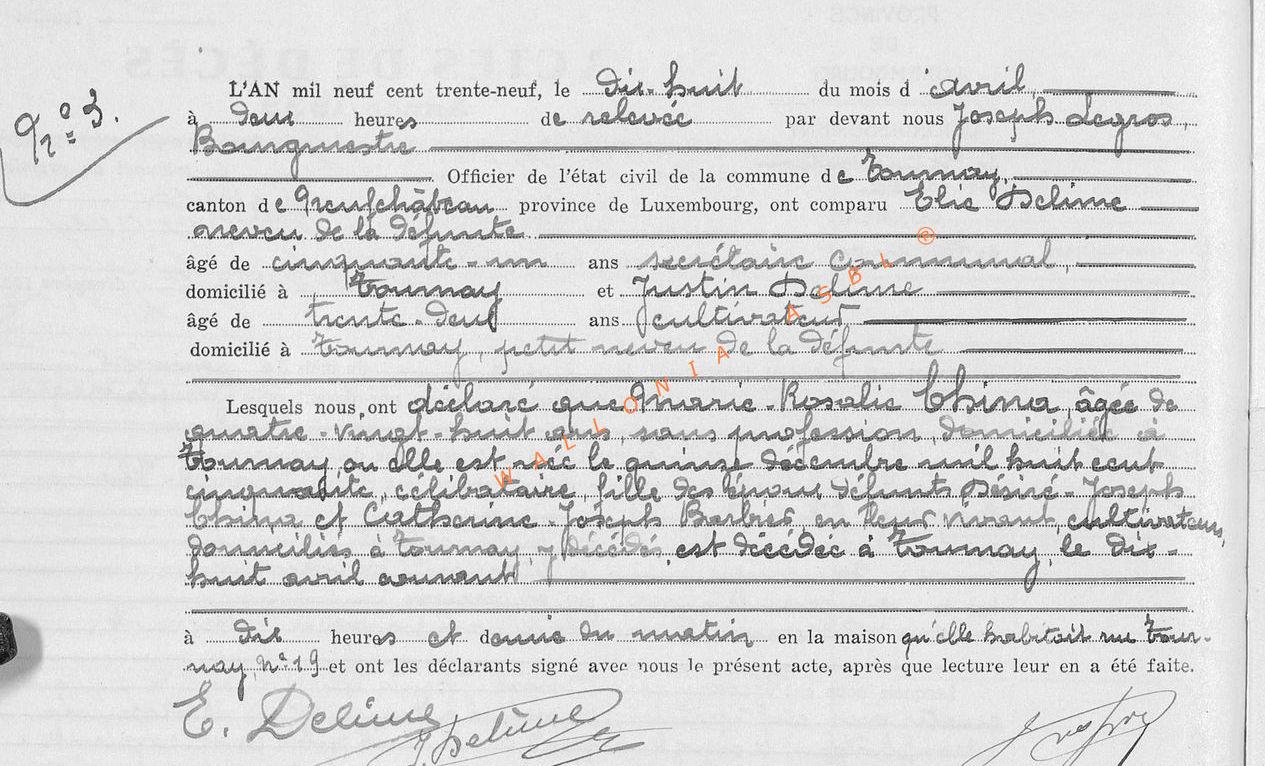 N° 3.
L'AN mil neuf cent trente-neuf, le dix-huit du mois d'avril,
à deux heures de relevée par devant nous Joseph Legros,
Bourgmestre
Officier de l'état civil de la commune de Tournay,
canton de Neufchâteau province de Luxembourg, ont comparu Elie Delime
neveu de la défunte
âgé de cinquante-un ans secrétaire communal,
domicilié à Tournay et Justin Delime
âgé de trente-deux ans cultivateur
domicilié à Tournay, petit neveu de la défunte
Lesquels nous ont déclaré que Marie-Rosalie China, âgée de
quatre-vingt-huit ans, sans profession, domiciliée à
Tournay où elle est née le quinze décembre mil huit cent
cinquante, célibataire, fille des époux défunts Désiré-Joseph
China et Catherine-Joseph Barbier, en leur vivant, cultivateurs,
domiciliés à Tournay, y décédés, est décédée à Tournay, le dix-
huit avril courant
à dix heures et demie du matin en la maison qu'elle habitait rue Tour-
nay, n° 19 et ont les déclarants signé avec nous le présent acte, après que lecture leur en a été faite.
E. Delime J. Delime
WALLONIA ASBL ®